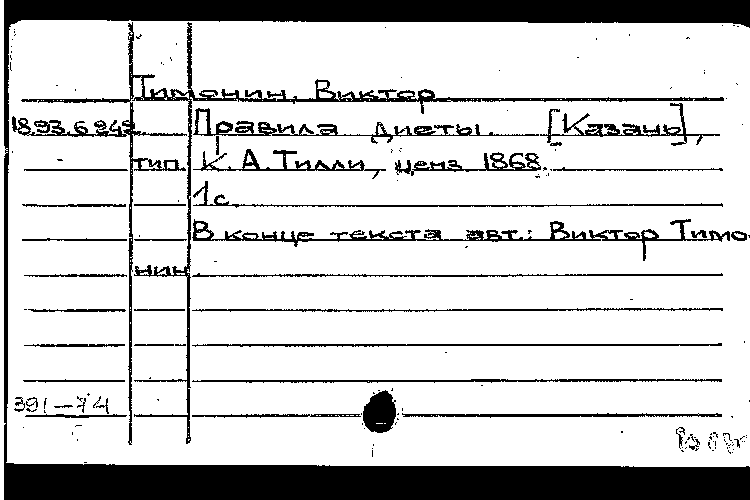 Тимонин, Виктор
18.93.6.949 Правила диеты. [Казань],
тип. К. А. Тилли, ценз. 1868.
1 с.
В конце текста авт.: Виктор Тимо-
нин.
391-74